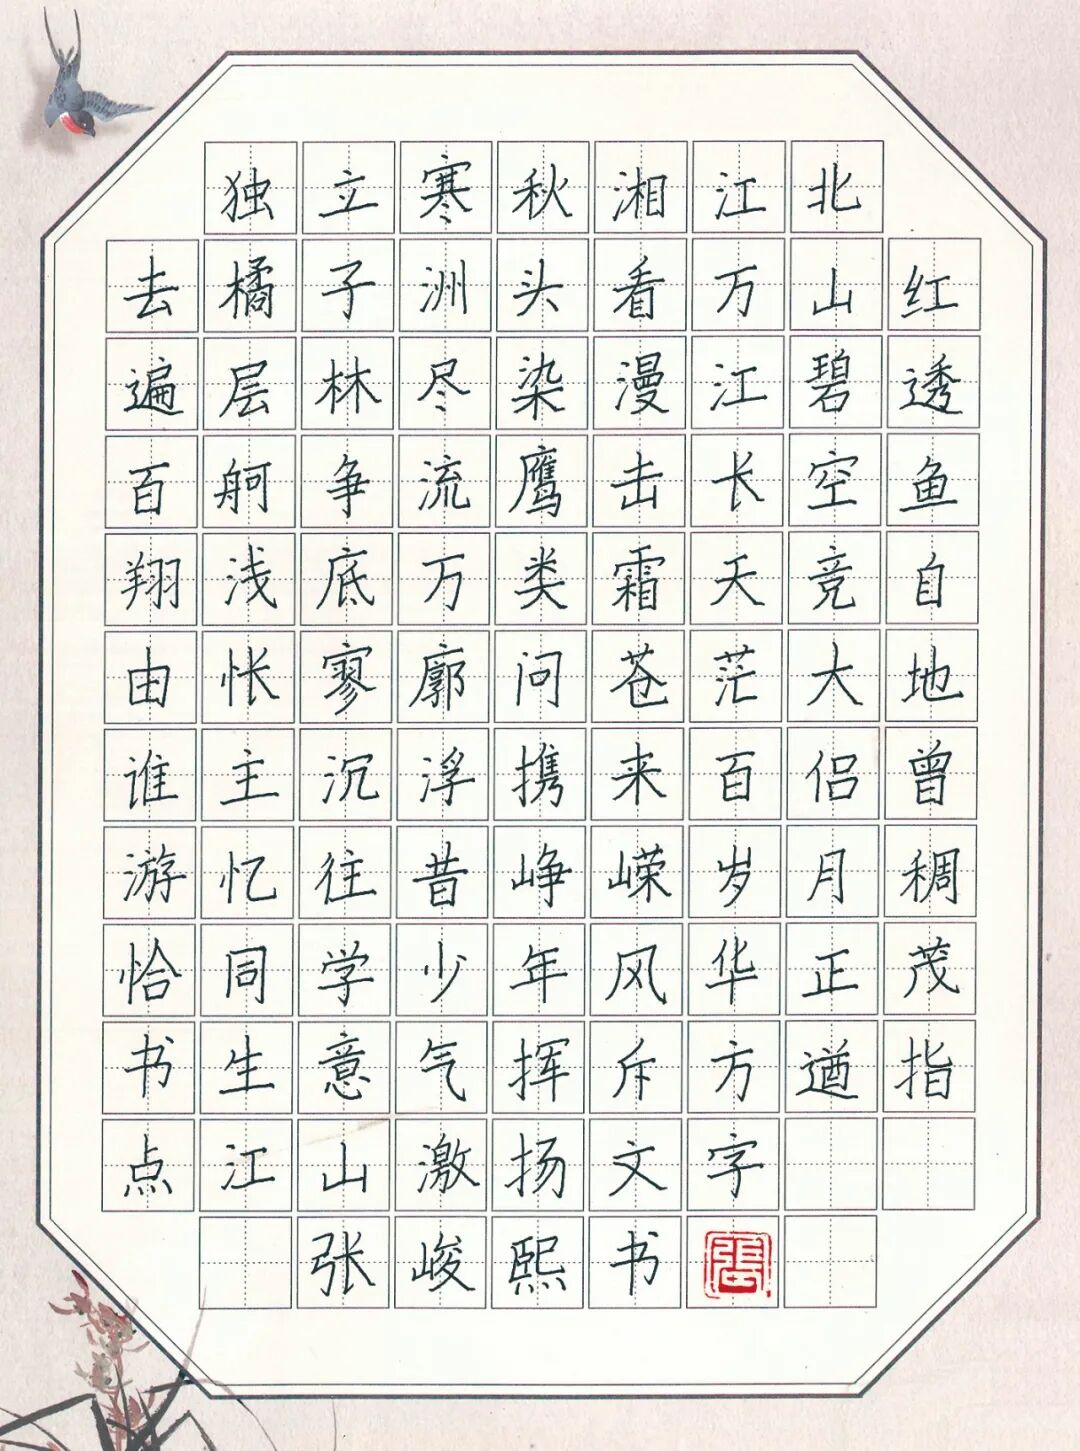 独立寒秋湘江北
去橘子洲头看万山红
遍层林尽染漫江碧透
百舸争流鹰击长空鱼
翔浅底万类霜天竞自
由怅寥廓问苍茫大地
谁主沉浮携来百侣曾
游忆往昔峥嵘岁月稠
恰同学少年风华正茂
书生意气挥斥方遒指
点江山激扬文字
张峻熙书